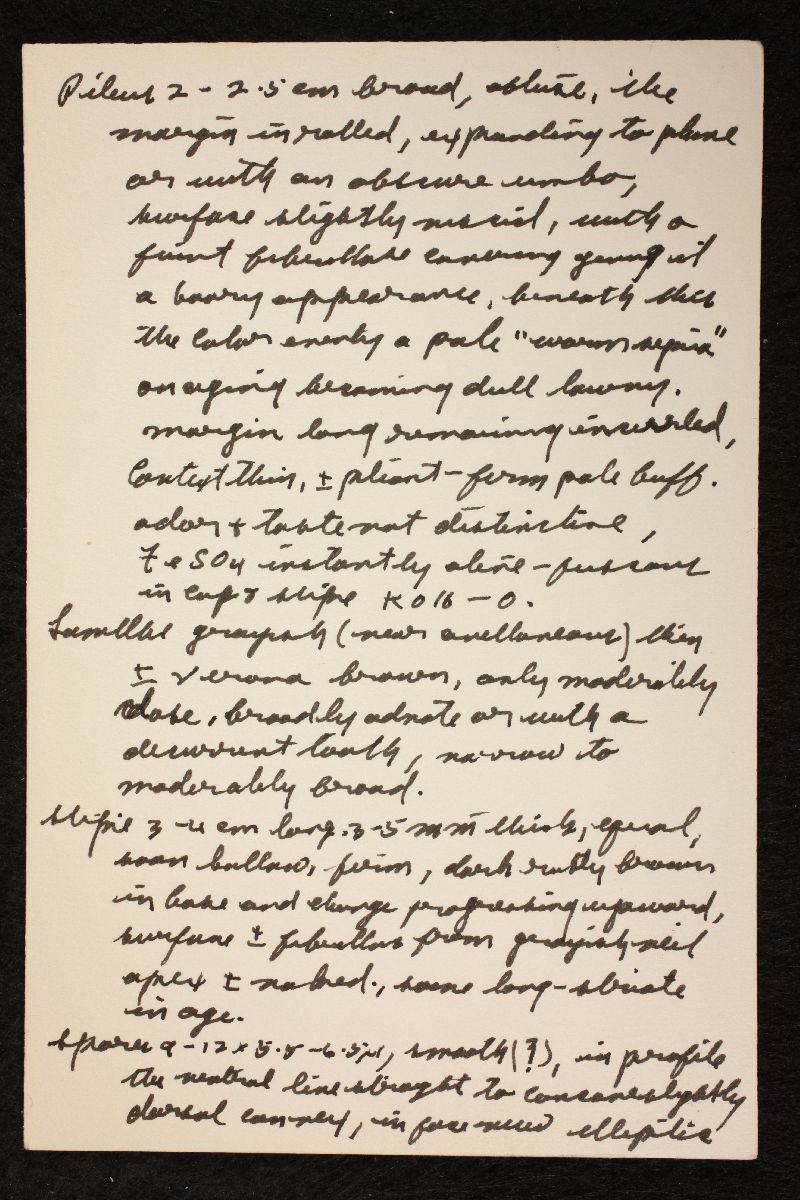 Pileus 2 - 2.5 cm broad, obtuse, the
margin inrolled, expanding to plane
or with an obscure umbo,
surface slightly viscid, with a
faint fibrillose covering giving it
a hoary appearance, beneath this
the color evenly a pale "warm sepia"
on aging becoming dull tawny.
margin long remaining incurved,
Context thin, ± pliant-firm pale buff.
odor + taste not distinctive,
FeSO4 instantly olive-fuscous
in cap & stipe KOH - O.
Lamellae grayish (near avellaneous) then
± verona brown, only moderately
close, broadly adnate or with a
decurrent tooth, narrow to
moderately broad.
stipe 3-4 cm long. 3-5 mm thick, equal,
soon hollow, firm, dark rusty brown
in base and change progressing upward,
surface ± fibrillose from grayish veil
apex ± naked., some long-striate
in age.
spores 9-12 x 5.5-6.5 µ, smooth(?), in profile
the ventral line straight to concave slightly
dorsal convex, in face view elliptic